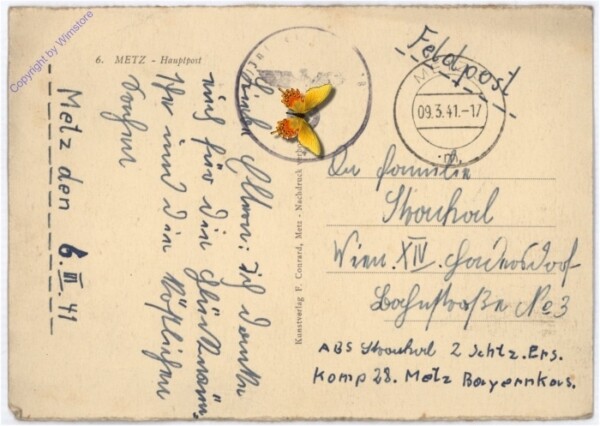 Copyright by Winstore
6. METZ - Hauptpost
Metz den 6. III. 41
Liebe Eltern: Ich danke
euch für die Glückwün.
und die köstlichen
Kunstverlag F. Conrard, Metz - Nachdruck
Feldpost
09.3.41.-17
An Familie
Strouhal
Wien. XIV. Hadersdorf
Bahnstraße No 3
ABS Strouhal 2 Schtz. Ers.
Komp 28. Metz Bayernkas.